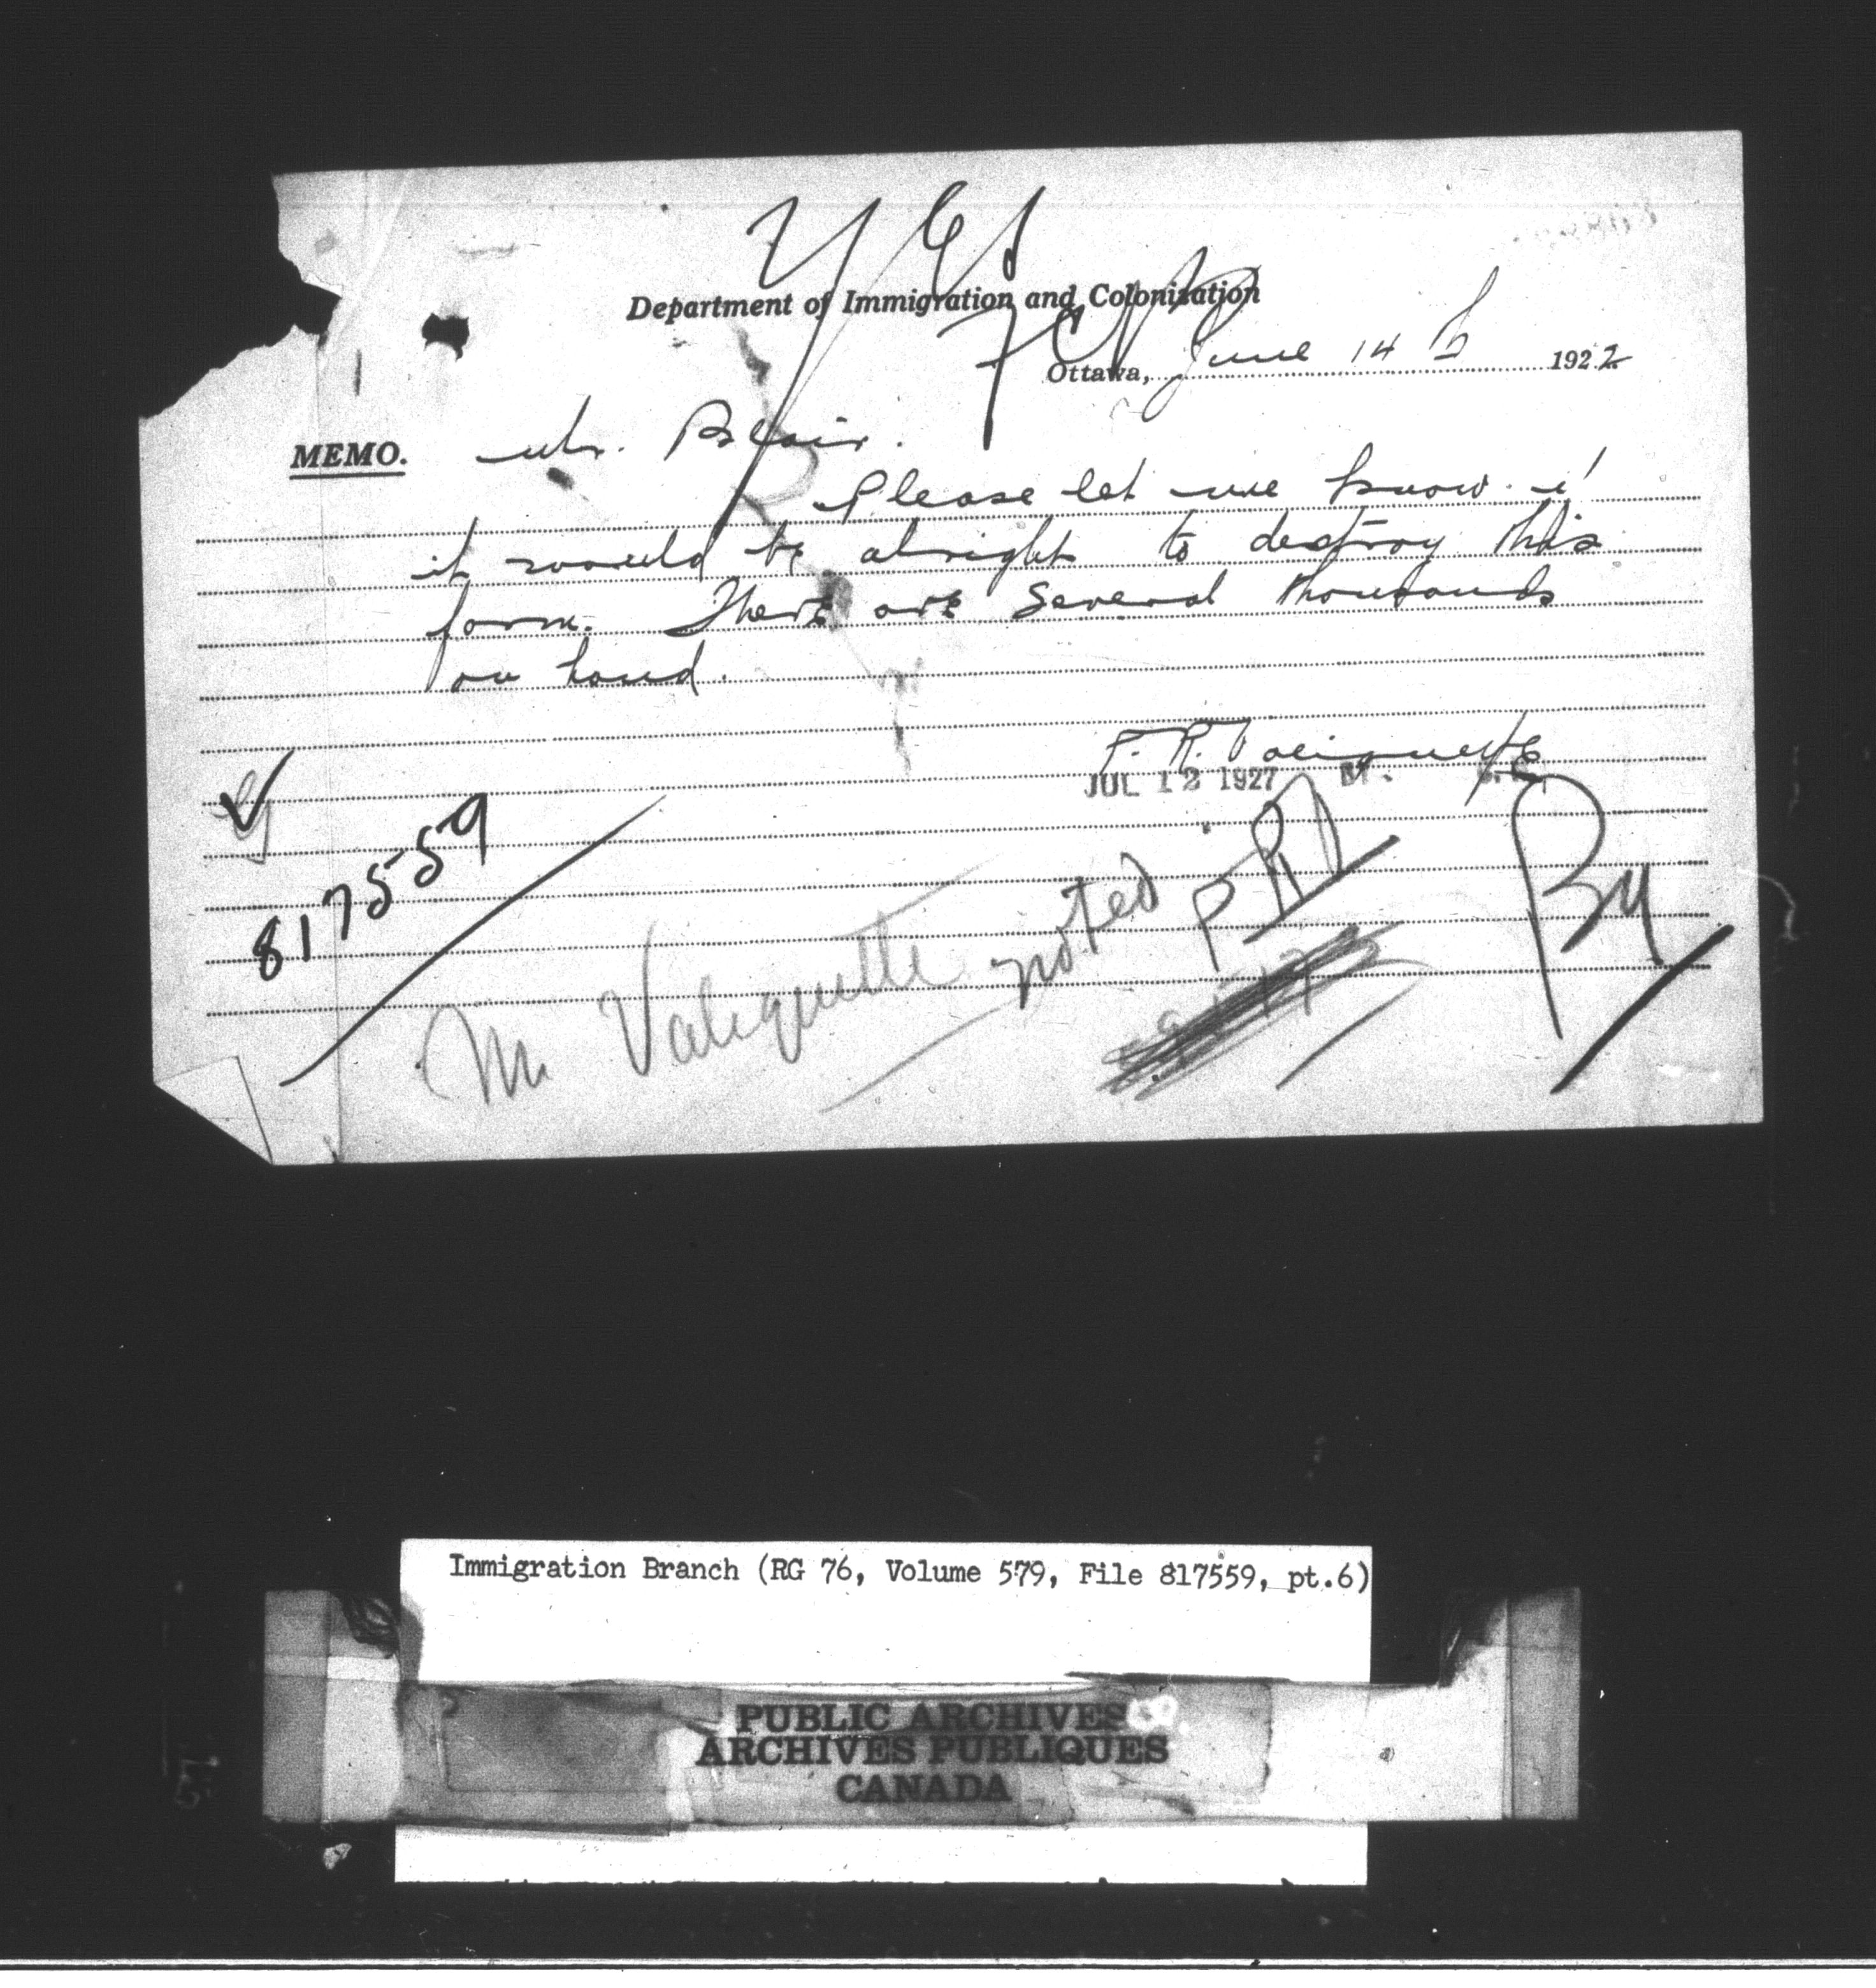 YES
Department of Immigration and Colonization
Ottawa, June 14 1922
MEMO. Mr. Blair.
Please let me know if
it would be alright to destroy this
form. There are several thousands
on hand.
F. R. Valiquette
JUL 12 1927 M.
817559
Mr Valiquette noted
Immigration Branch (RG 76, Volume 579, File 817559, pt.6)
PUBLIC ARCHIVES
ARCHIVES PUBLIQUES
CANADA